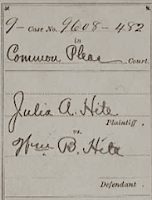 9- Case No. 9608-482
in
Common Pleas Court.
Julia A. Hite
Plaintiff,
vs.
Wm B. Hite
Defendant.